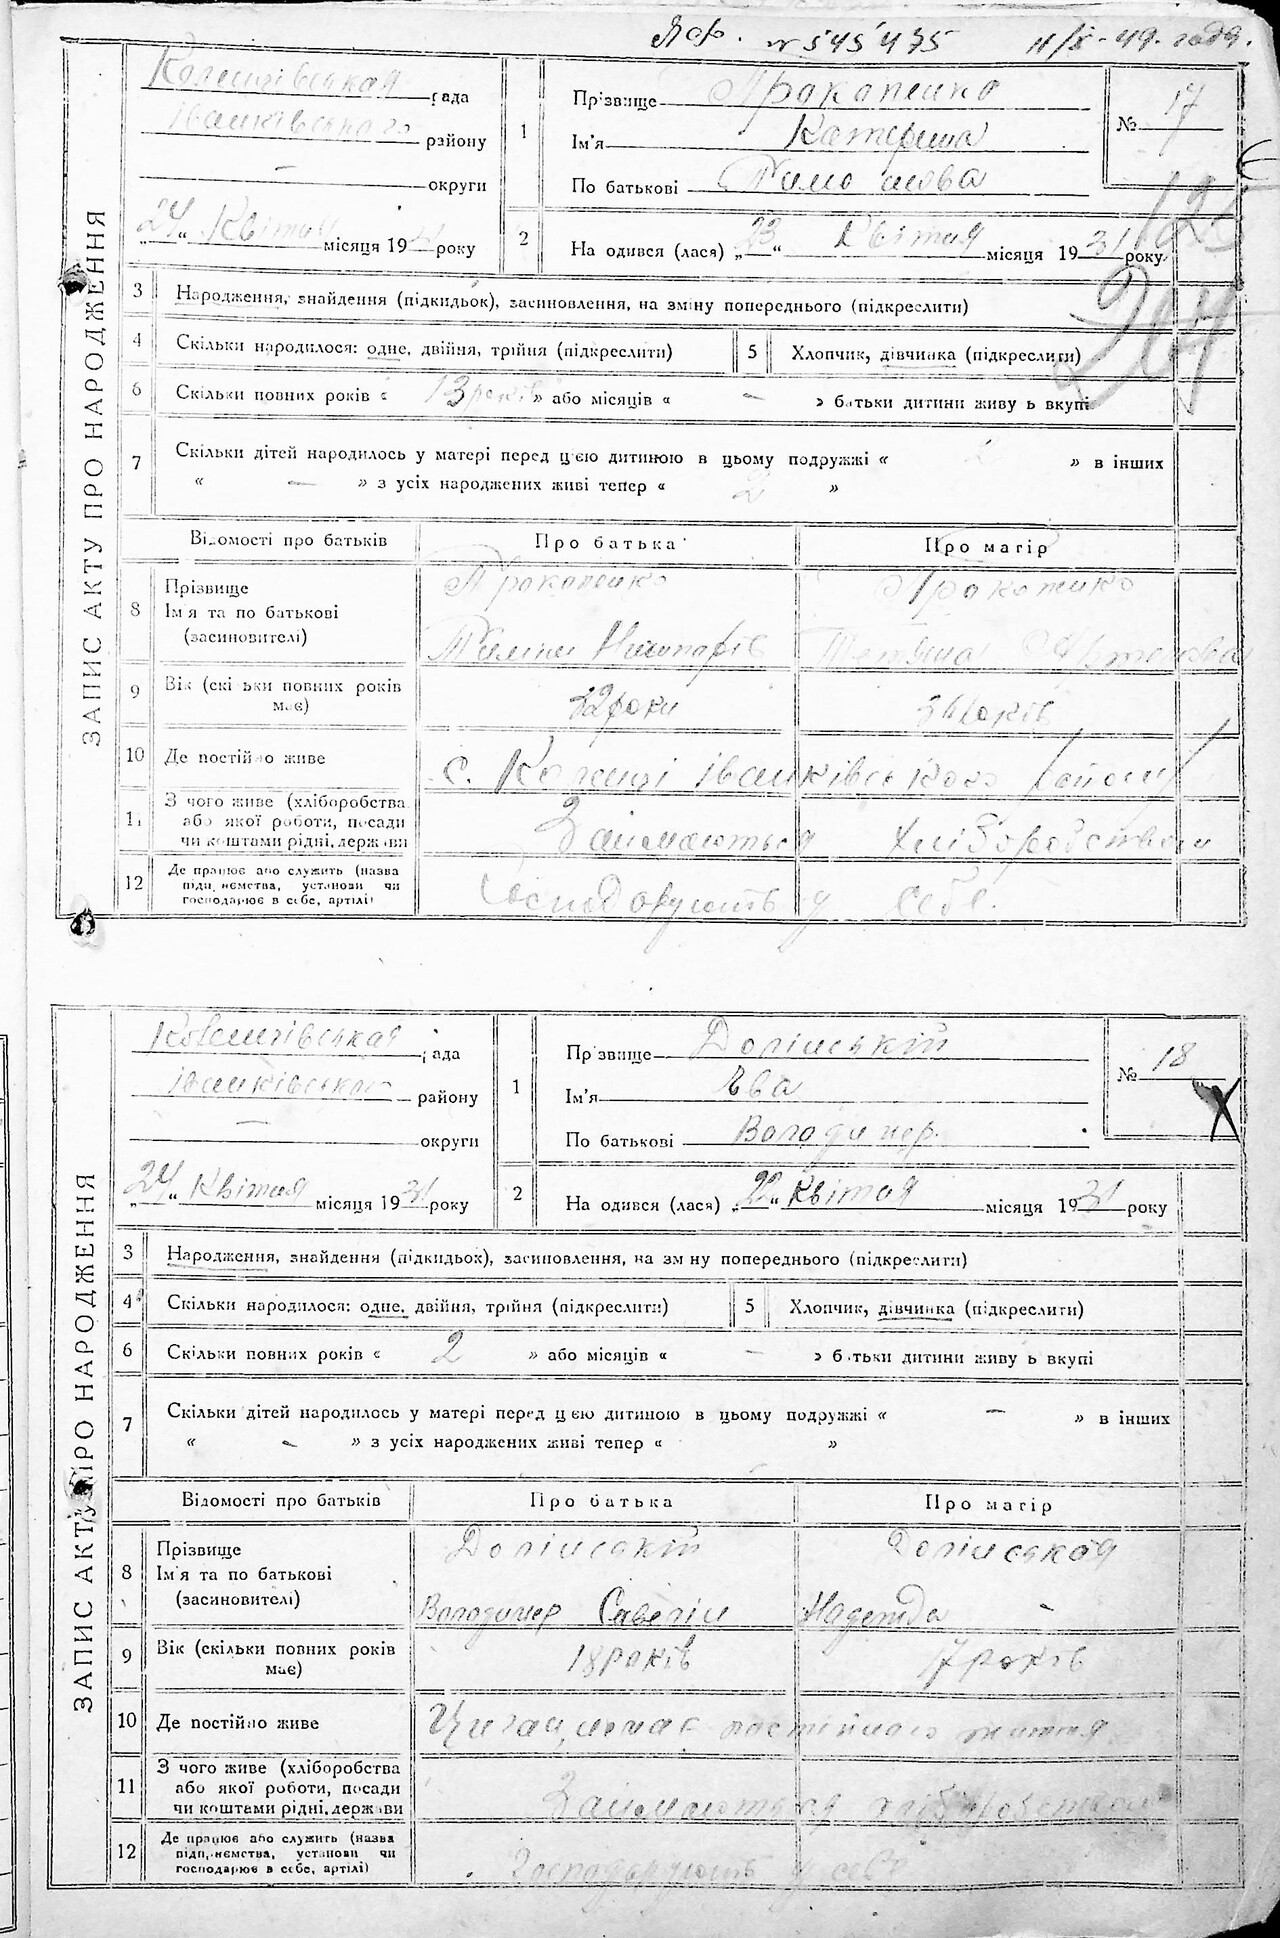 № 545475 11/X-49 года.
ЗАПИС АКТУ ПРО НАРОДЖЕННЯ
рада
Іванківського району
— округи
„24“ Квітня місяця 1931 року
1
Прізвище Прокопенко
Ім'я Катерина
По батькові
№ 17
2
На одився (лася) „23“ Квітня місяця 1931 року
3 Народження, знайдення (підкидьок), засиновлення, на зміну попереднього (підкреслити)
4 Скільки народилося: одне, двійня, трійня (підкреслити)
5 Хлопчик, дівчинка (підкреслити)
6 Скільки повних років « 13 років » або місяців « — » батьки дитини живу ь вкупі
7 Скільки дітей народилось у матері перед цією дитиною в цьому подружжі « » в інших
« — » з усіх народжених живі тепер « 2 »
Відомості про батьків Про батька Про матір
8 Прізвище
Ім'я та по батькові
(засиновителі)
Прокопенко Прокопенко
Тетяна
9 Вік (скі ьки повних років
має)
роки років
10 Де постійно живе
с. Іванківського району
11 З чого живе (хліборобства
або якої роботи, посади
чи коштами рідні, держави
Займаються хліборобством
12 Де працює або служить (назва
підп иємства, установи чи
господарює в себе, артілі)
Господарують у себе.
ЗАПИС АКТУ ПРО НАРОДЖЕННЯ
рада
району
— округи
„24“ Квітня місяця 1931 року
1
Прізвище Долінський
Ім'я Єва
По батькові Володимер.
№ 18
X
2
На одився (лася) „22“ Квітня місяця 1931 року
3 Народження, знайдення (підкидьок), засиновлення, на зм ну попереднього (підкреслити)
4 Скільки народилося: одне, двійня, трійня (підкреслити)
5 Хлопчик, дівчинка (підкреслити)
6 Скільки повних років « 2 » або місяців « — » батьки дитини живу ь вкупі
7 Скільки дітей народилось у матері перед цією дитиною в цьому подружжі « — » в інших
« — » з усіх народжених живі тепер « »
Відомості про батьків Про батька Про матір
8 Прізвище
Ім'я та по батькові
(засиновителі)
Долінський Долінськая
Володимер Савелін Надежда -
9 Вік (скільки повних років
має)
18 років 17 років
10 Де постійно живе
Циган, немає постійного життя
11 З чого живе (хліборобства
або якої роботи, посади
чи коштами рідні, держави
Займаються хліборобством
12 Де працює або служить (назва
підприємства, установи чи
господарює в себе, артілі)
Господарують у себе